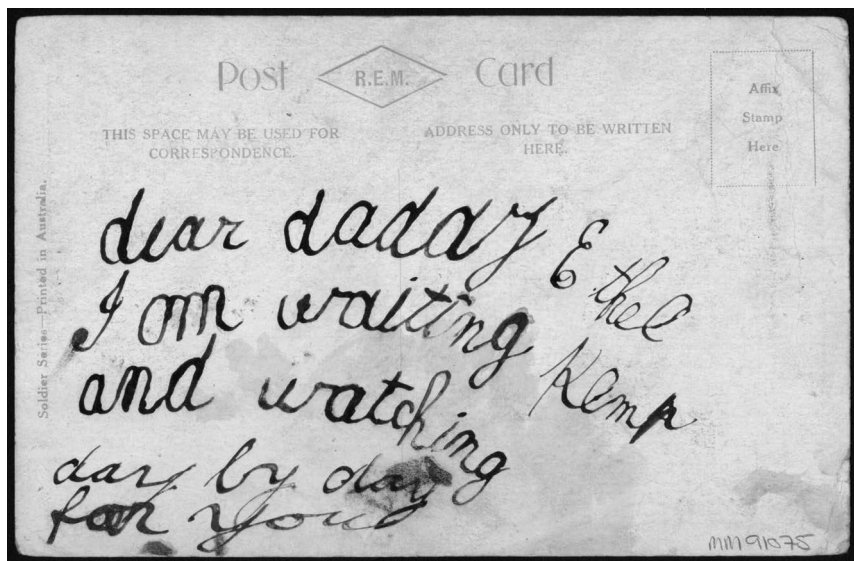 Post R.E.M. Card
Affix
Stamp
Here
THIS SPACE MAY BE USED FOR
CORRESPONDENCE.
ADDRESS ONLY TO BE WRITTEN
HERE.
Soldier Series—Printed in Australia.
dear daddy
I am waiting
and watching
day by day
for you
Ethel
Kemp
MM 91075